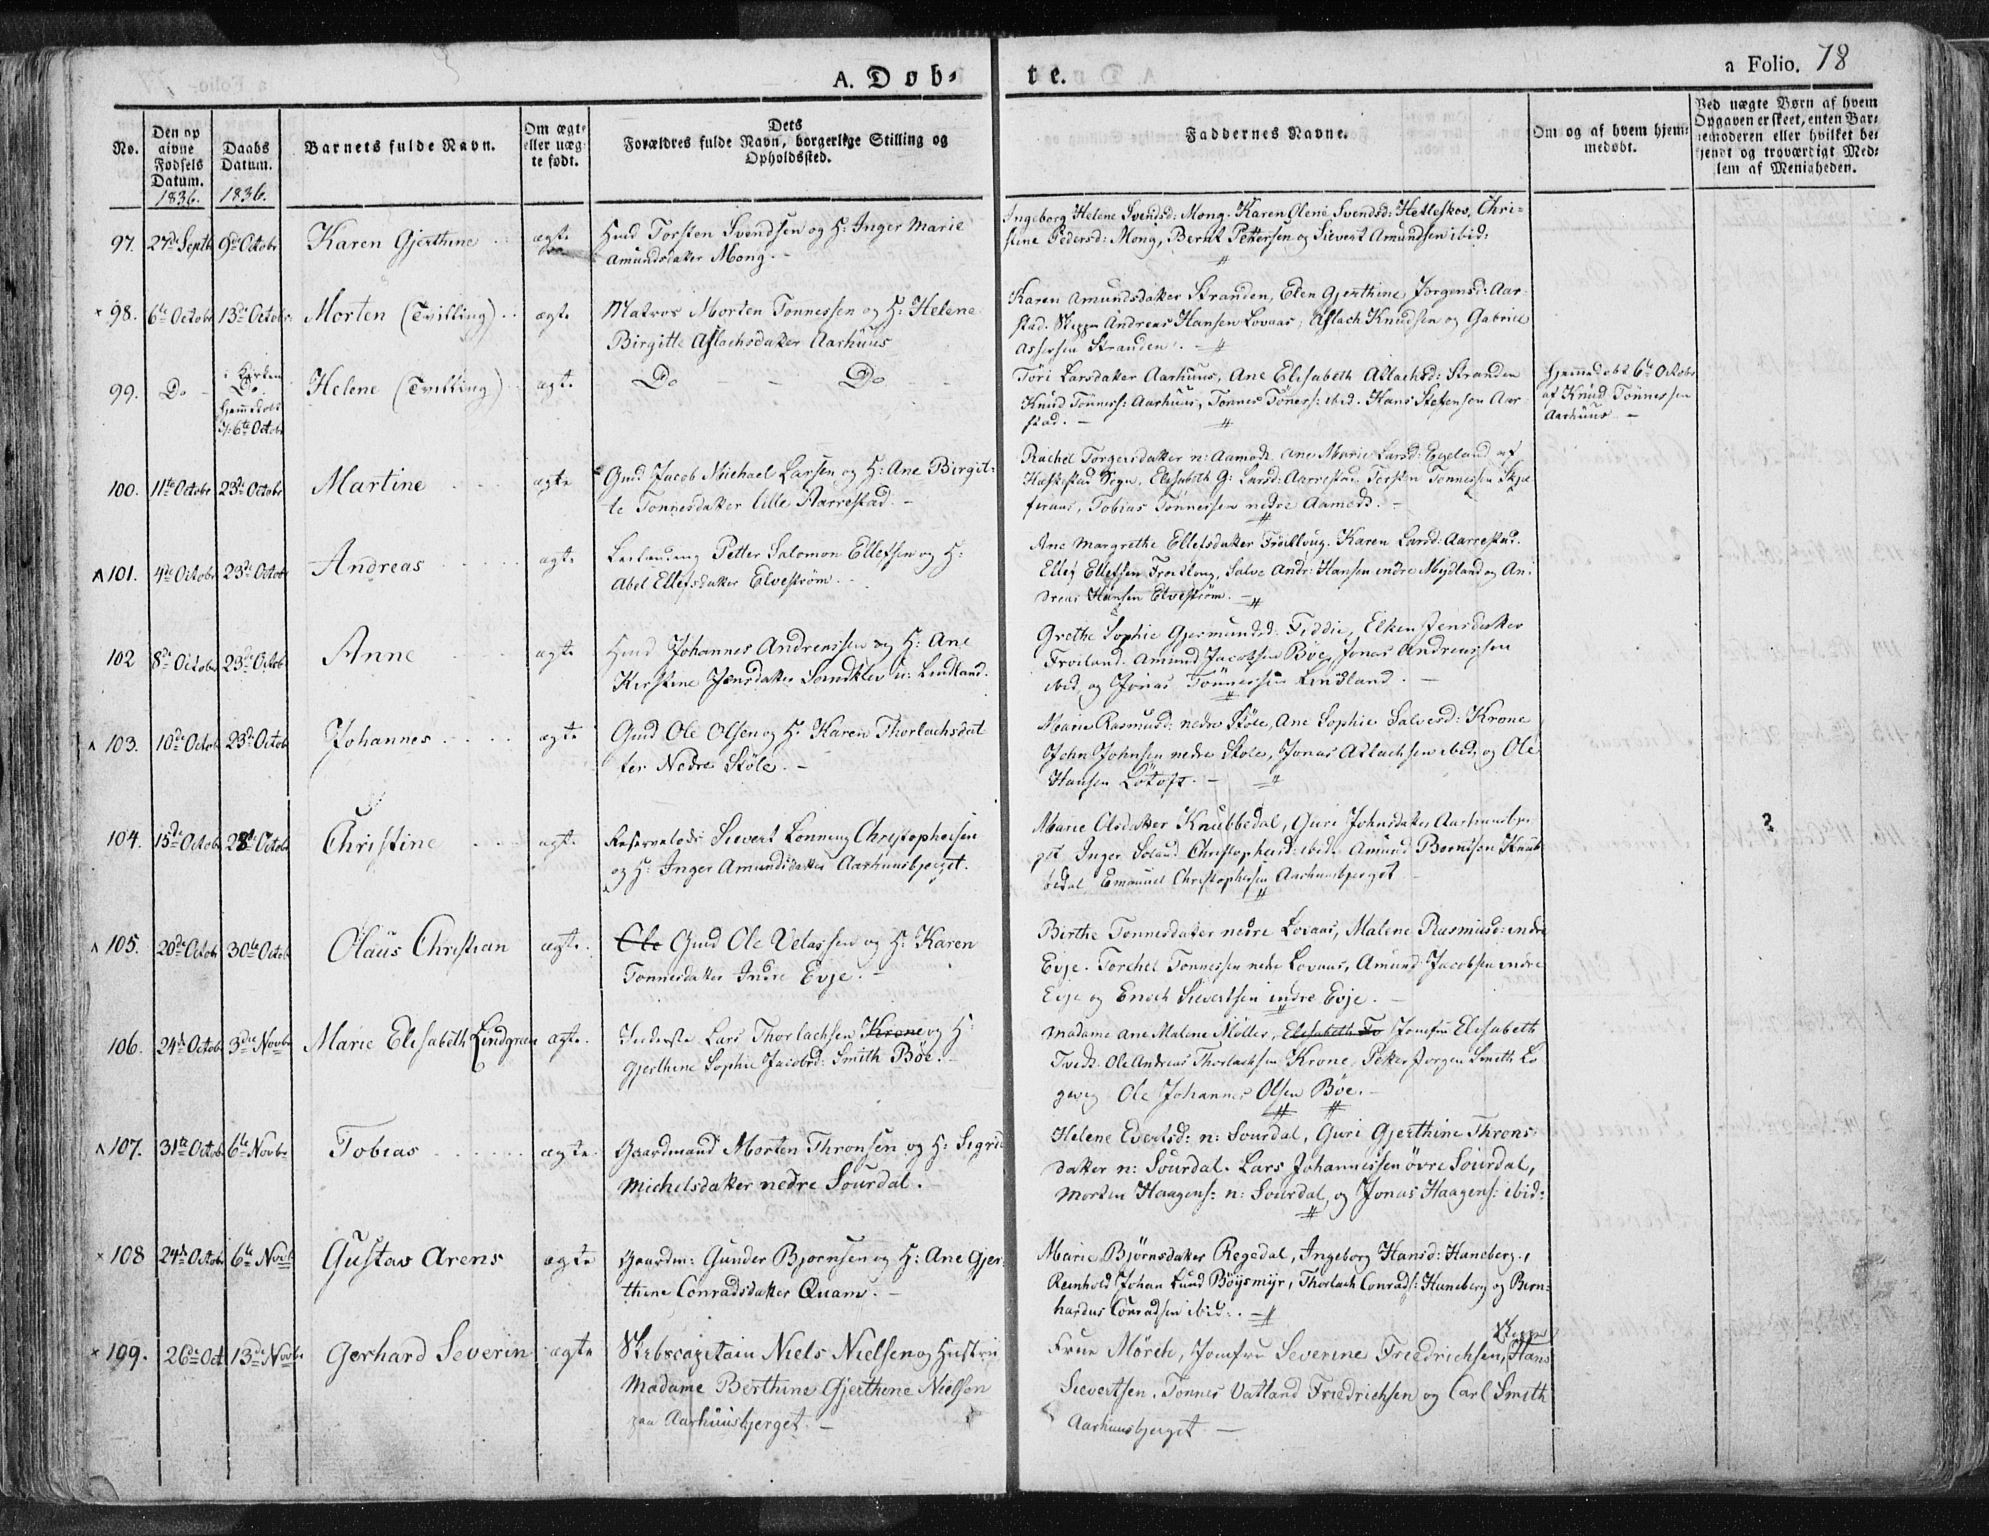 A. Døb-
te.
a Folio. 78
No.
Den op
givne
Fødsels
Datum.
1836.
Daabs
Datum.
1836.
Barnets fulde Navn.
Om ægte
eller uæg-
te født.
Dets
Forældres fulde Navn, borgerlige Stilling og
Opholdsted.
Faddernes Navne.
Om og af hvem hjem-
medøbt.
Ved uægte Børn af hvem
Opgaven er skeet, enten Bar-
nemoderen eller hvilket be-
kjendt og troværdigt Med-
lem af Menigheden.
97. 27de Septb 9de Octobr Karen Gjerthine ægte
Huud Torsten Svendsen og H: Inger Marie
Amundsdatter Mong.
Ingeborg Helene Svendsd: Mong. Karen Olene Svendsd: Hetleskov, Chri-
stine Pedersd: Mong, Bernt Pettersen og Sievert Amundsen ibid:
98. 6te Octobr 13de Octobr Morten (Tvilling) ægte
Matros Morten Tønnessen og H: Helene
Birgitte Aslachsdatter Aarhuus
Karen Amundsdatter Stranden, Elen Gjerthine Jørgensd: Aar-
stad. Skipper Andreas Hansen Lovaas, Aslach Knudsen og Gabriel
Assersen Stranden.
99. Do i Kirken
Do
hjemmedøbt
d: 6te Octobr
Helene (Tvilling) ægte Do Do
Tøri Larsdatter Aarhuus, Ane Elisabeth Aslachsd: Stranden
Knud Tønness: Aarhuus, Tønnes Tøness: ibid. Hans Steffensen Aar-
stad.
Hjemmedøbt 6te Octobr
af Knud Tønnessen
Aarhuus
100. 11te Octobr 23de Octobr Martine ægte
Gmd Jacob Michael Larsen og H: Ane Birgit-
te Tønnesdatter lille Aarrestad.
Rachel Torgersdatter n: Aamodt, Ane Marie Larsd: Egeland af
Heskestad Sogn. Elisabeth G: Larsd: Aarrestad. Torsten Tønnessen
Tobias Tønnessen nedre Aamodt.
101. 4de Octobr 23de Octobr Andreas ægte
Petter Salomon Ellefsen og H:
Abel Ellefsdatter Elvestrøm.
Ane Margrethe Ellefsdatter Karen Larsd: Aarrestad.
Ellef Ellefsen Salve Andr: Hansen indre Mydland og An-
dreas Hansen Elvestrøm.
102 8de Octobr 23de Octob Anne ægte
Huud Johannes Andreassen og H: Ane
Kirstine Jensdatter Sandklev u: Lindland.
Grethe Sophie Gjermundsd: Fiddie, Elken Jensdatter
Frøiland. Amund Jacobsen Bøe, Jonas Andreassen
ibid. og Jonas Tønnessen Lindland.
103. 10de Octob 23de Octob Johannes ægte
Gmd Ole Olsen og H: Karen Thorlachsdat-
ter Nedre Støle.
Marie Rasmusd: nedre Støle, Ane Sophie Salvesd: Krone
John Johnsen nedre Støle, Jonas Aslachsen ibid. og Ole
Hansen Løtoft.
104. 15de Octob 28de Octob Christine ægte
Sievert Lonning Christophersen
og H: Inger Amundsdatter Aarhuusbjerget.
Marie Olsdatter Knubbedal, Guri Johnsdatter Aarhuusbjer-
get Inger Christophersd: ibid. Amund Berntsen Knub-
bedal Emanuel Christophersen Aarhuusbjerget
2
105. 20de Octob 30te Octob Olaus Christian ægte.
Ole Gmd Ole Velassen og H: Karen
Tønnesdatter Indre Evje.
Birthe Tønnesdatter nedre Lovaas, Malene Rasmusd: indre
Evje. Torchel Tønnessen nedre Lovaas, Amund Jacobsen indre
Evje og Enoch Sievertsen indre Evje.
106. 24de Octob 3die Novbr Marie Elisabeth Lindgreen ægte.
Inderste Lars Thorlachsen Krone og H:
Gjerthine Sophie Jacobsd: Smith Bøe.
Madame Ane Malene Møller, Elisabeth Tv Jomfru Elisabeth
Tvedt. Ole Andreas Thorlachsen Krone, Petter Jørgen Smith Lo-
Ole Johannes Olsen Bøe.
107. 31te Octob 6te Novbr Tobias ægte
Gaardmand Morten Thronsen og H: Sigri
Michelsdatter nedre Sourdal.
Helene Evertsd: n: Sourdal, Guri Gjerthine Throns-
datter n: Sourdal. Lars Johannessen øvre Sourdal,
Morten Haagens: n: Sourdal, og Jonas Haagens: ibid:
108 24de Octobr 6te Novb Gustav Arens ægte
Gaardm: Gunder Bjornsen og H: Ane Gjer-
thine Conradsdatter Quam.
Marie Bjørnsdatter Regedal, Ingeborg Hansd: Haneberg,
Reinhold Johan Lund Bøysmyr, Thorlach Conrads: Haneberg og Bern-
hardus Conradsen ibid:
109. 26de Oct 13de Novb Gerhard Severin ægte
Skibscapitain Niels Nielsen og Hustru
Madame Berthine Gjerthine Nielsen
paa Aarhuusbjerget.
Skipper
Frue Mørch, Jomfru Severine Friedrichsen, Hans
Sievertsen, Tønnes Vatland Friedrichsen og Carl Smith
Aarhuusbjerget